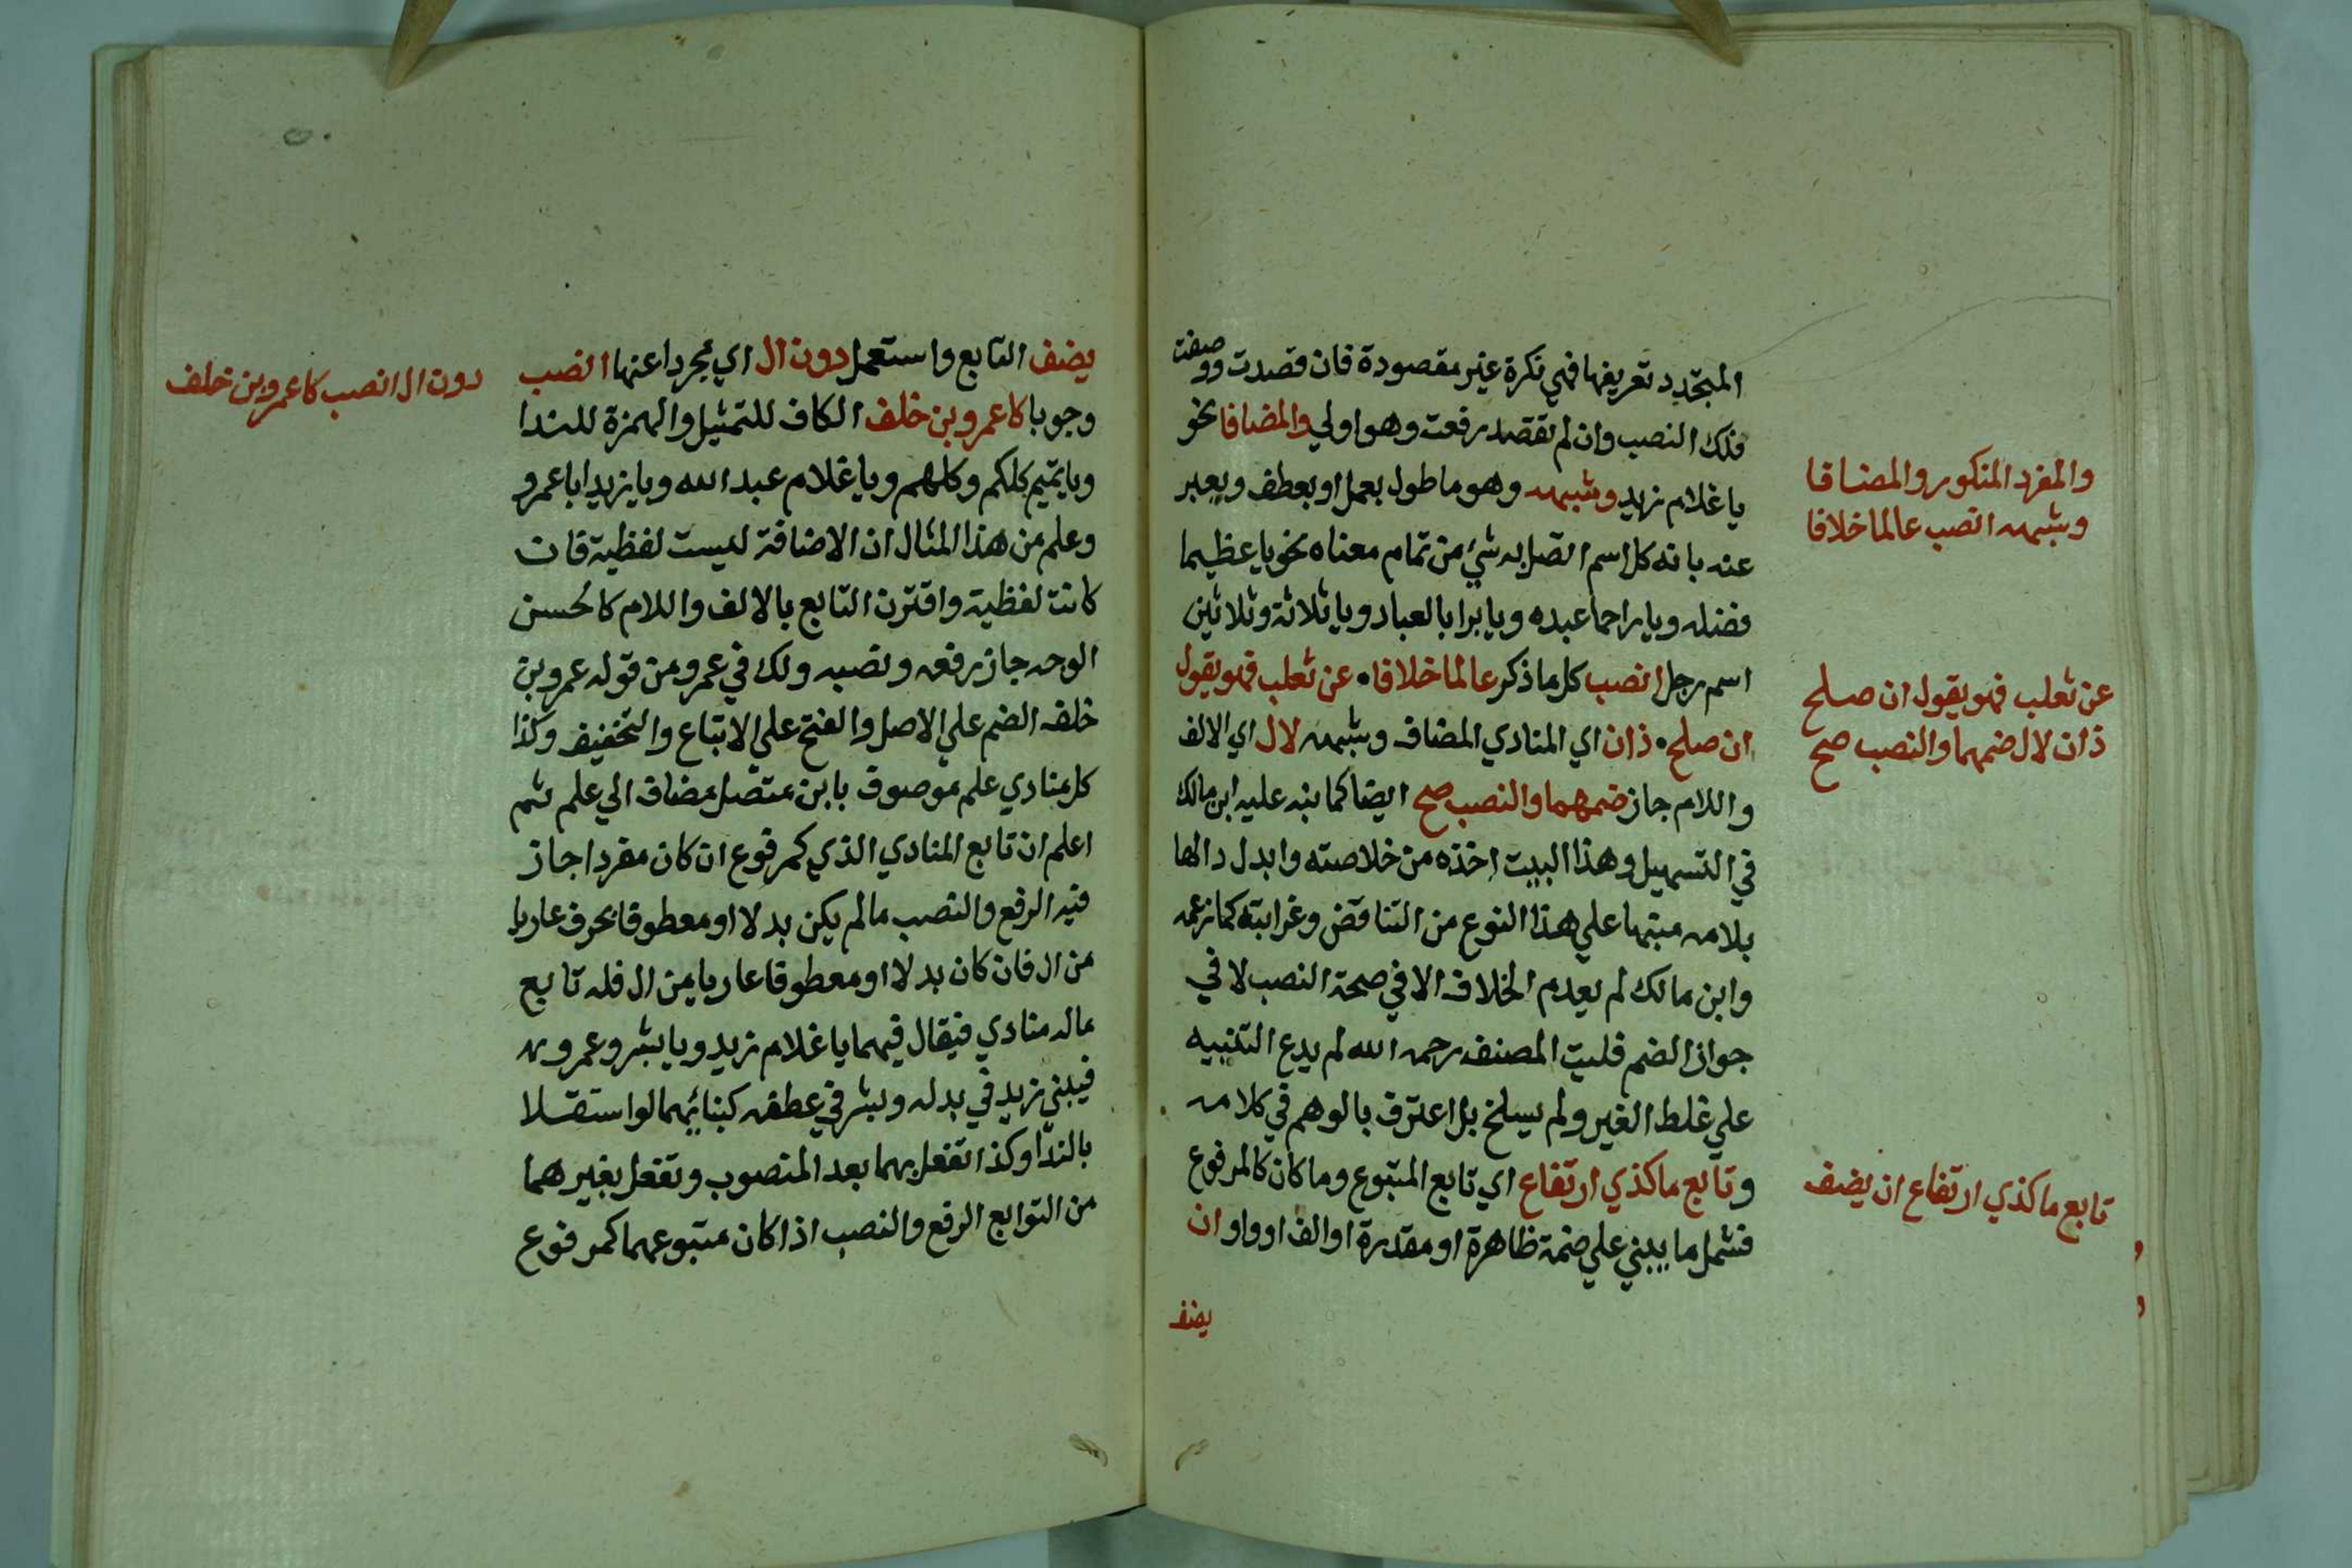 المتجدد تعريفها فهي نكرة غير مقصودة فان قصدت ووصفت
فلك النصب وان لم تقصد رفعت وهو اولي والمضافا نحو
يا غلام زيد وشبهه وهو ما طول بعمل او بعطف ويعبر
عنه بانه كل اسم اتصل به شيء من تمام معناه نحو يا عظيما
فضله ويا راحما عبده ويا برا بالعباد ويا ثلاثة وثلاثين
اسم رجل انصب كل ما ذكر عالما خلافا عن ثعلب فهو يقول
ان صلح ذان اي المنادي المضاف وشبهه لال اي الالف
واللام جاز ضمهما والنصب صح ايضا كما نبه عليه ابن مالك
في التسهيل وهذا البيت اخذه من خلاصته وابدل دالها
بلامه منبها علي هذا النوع من التناقض وغرابته كما زعمه
وابن مالك لم يعدم الخلاف الا في صحة النصب لا في
جواز الضم فليت المصنف رحمه الله لم يدع التنبيه
علي غلط الغير ولم يسلخ بل اعترف بالوهم في كلامه
وتابع ما كذي ارتفاع اي تابع المتبوع وما كان كالمرفوع
فشمل ما يبني علي ضمة ظاهرة او مقدرة او الف او واو ان
يضف
والمفرد المنكور والمضافا
وشبهه انصب عالما خلافا
عن ثعلب فهو يقول ان صلح
ذان لال ضمهما والنصب صح
تابع ما كذي ارتفاع ان يضف
يضف التابع واستعمل دون ال اي مجردا عنها انصب
وجوبا كاعمرو بن خلف الكاف للتمثيل والهمزة للندا
ويا تميم كلكم وكلهم ويا غلام عبد الله ويا زيد ابا عمرو
وعلم من هذا المثال ان الاضافة ليست لفظية فان
كانت لفظية واقترن التابع بالالف واللام كالحسن
الوجه جاز رفعه ونصبه ولك في عمرو من قوله عمرو بن
خلف الضم علي الاصل والفتح علي الاتباع والتخفيف وكذا
كل منادي علم موصوف بابن متصل مضاف الي علم ثم
اعلم ان تابع المنادي الذي كمرفوع ان كان مفردا جاز
فيه الرفع والنصب ما لم يكن بدلا او معطوفا بحرف عاريا
من ال فان كان بدلا او معطوفا عاريا من ال فله تابع
ماله منادي فيقال فيهما يا غلام زيد ويا بشر وعمرو
فيبني زيد في بدله وبشر في عطفه كبنائهما لو استقلا
بالندا وكذا تفعل بهما بعد المنصوب وتفعل بغيرهما
من التوابع الرفع والنصب اذا كان متبوعهما كمرفوع
دون ال انصب كاعمرو بن خلف